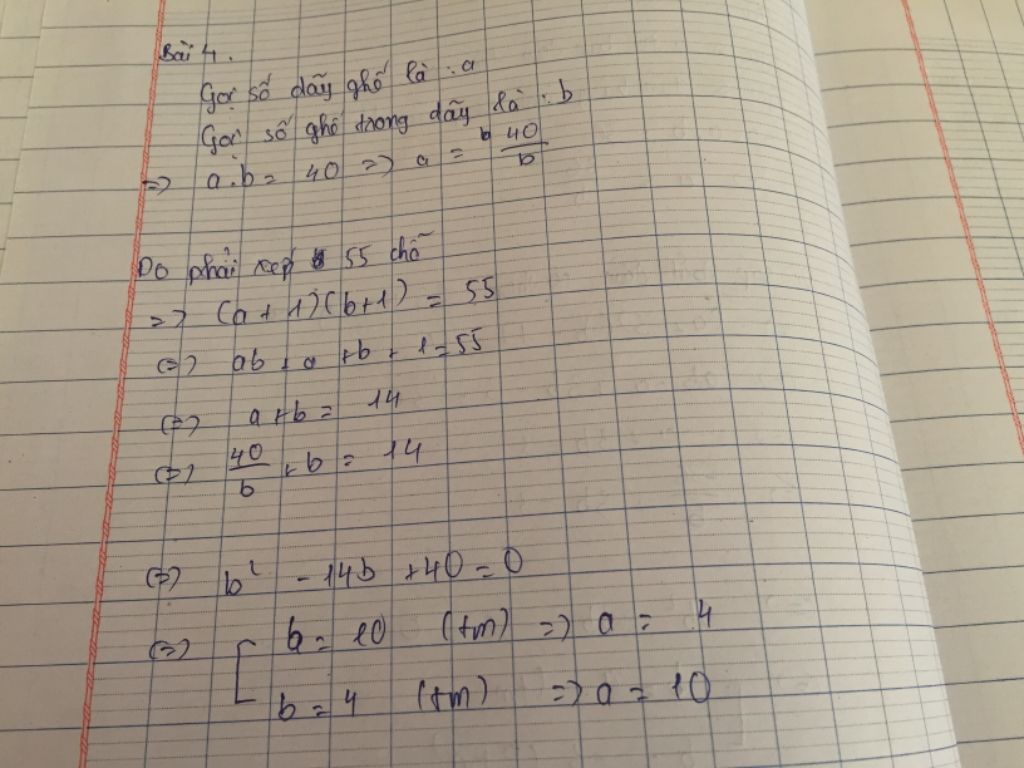 Bài 4.
Gọi số dãy ghế là : a
Gọi số ghế trong dãy là : b
=> a.b = 40 => a = 40/b
Do phải xếp 55 chỗ
=> (a + 1)(b+1) = 55
<=> ab + a + b + 1 = 55
<=> a + b = 14
<=> 40/b + b = 14
<=> b² - 14b + 40 = 0
<=> [ b = 10 (tm) => a = 4
b = 4 (tm) => a = 10